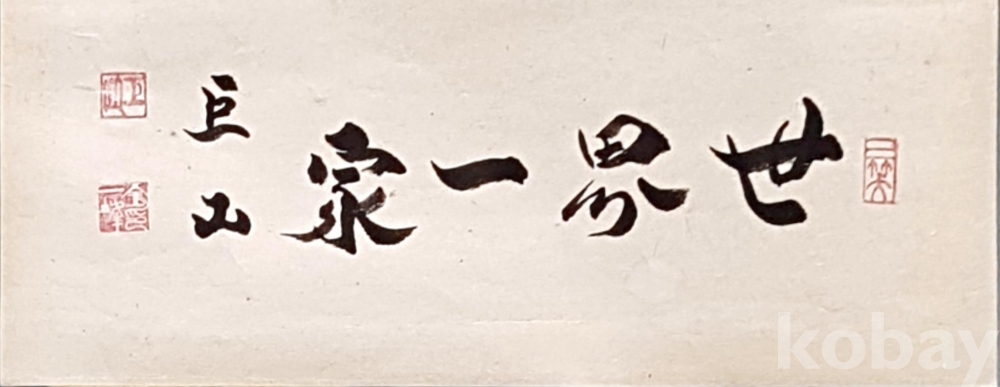 世界一家
巨山
kobay